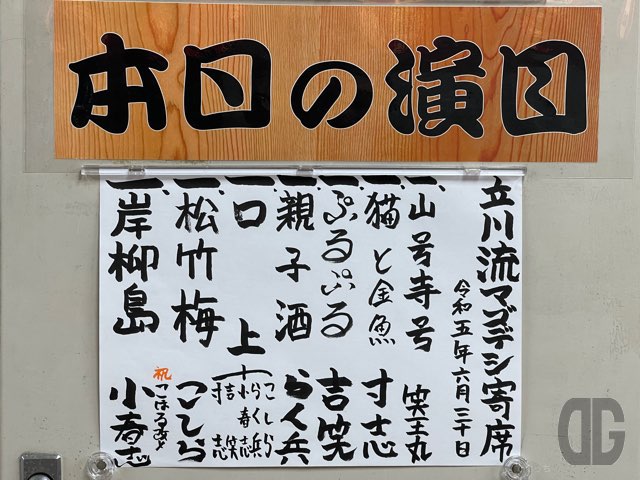 本日の演目
立川流マゴデシ寄席
令和五年六月三十日
一、山号寺号 笑王丸
一、猫と金魚 寸志
一、ぷるぷる 吉笑
一、親子酒 らく兵
一、口上
こしら
らく兵
小春志
吉笑
寸志
一、松竹梅 こしら
祝
一、岸柳島 小春志
DG